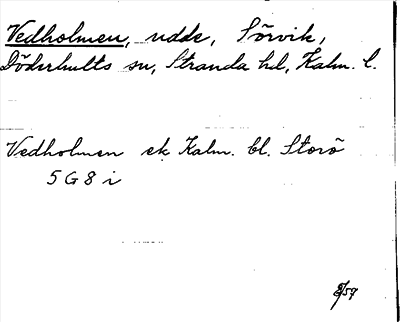 Vedholmen, udde, Sörvik,
Döderhults sn, Stranda hd, Kalm. l.
Vedholmen ek Kalm. bl. Storö
5 G 8 i
8/59